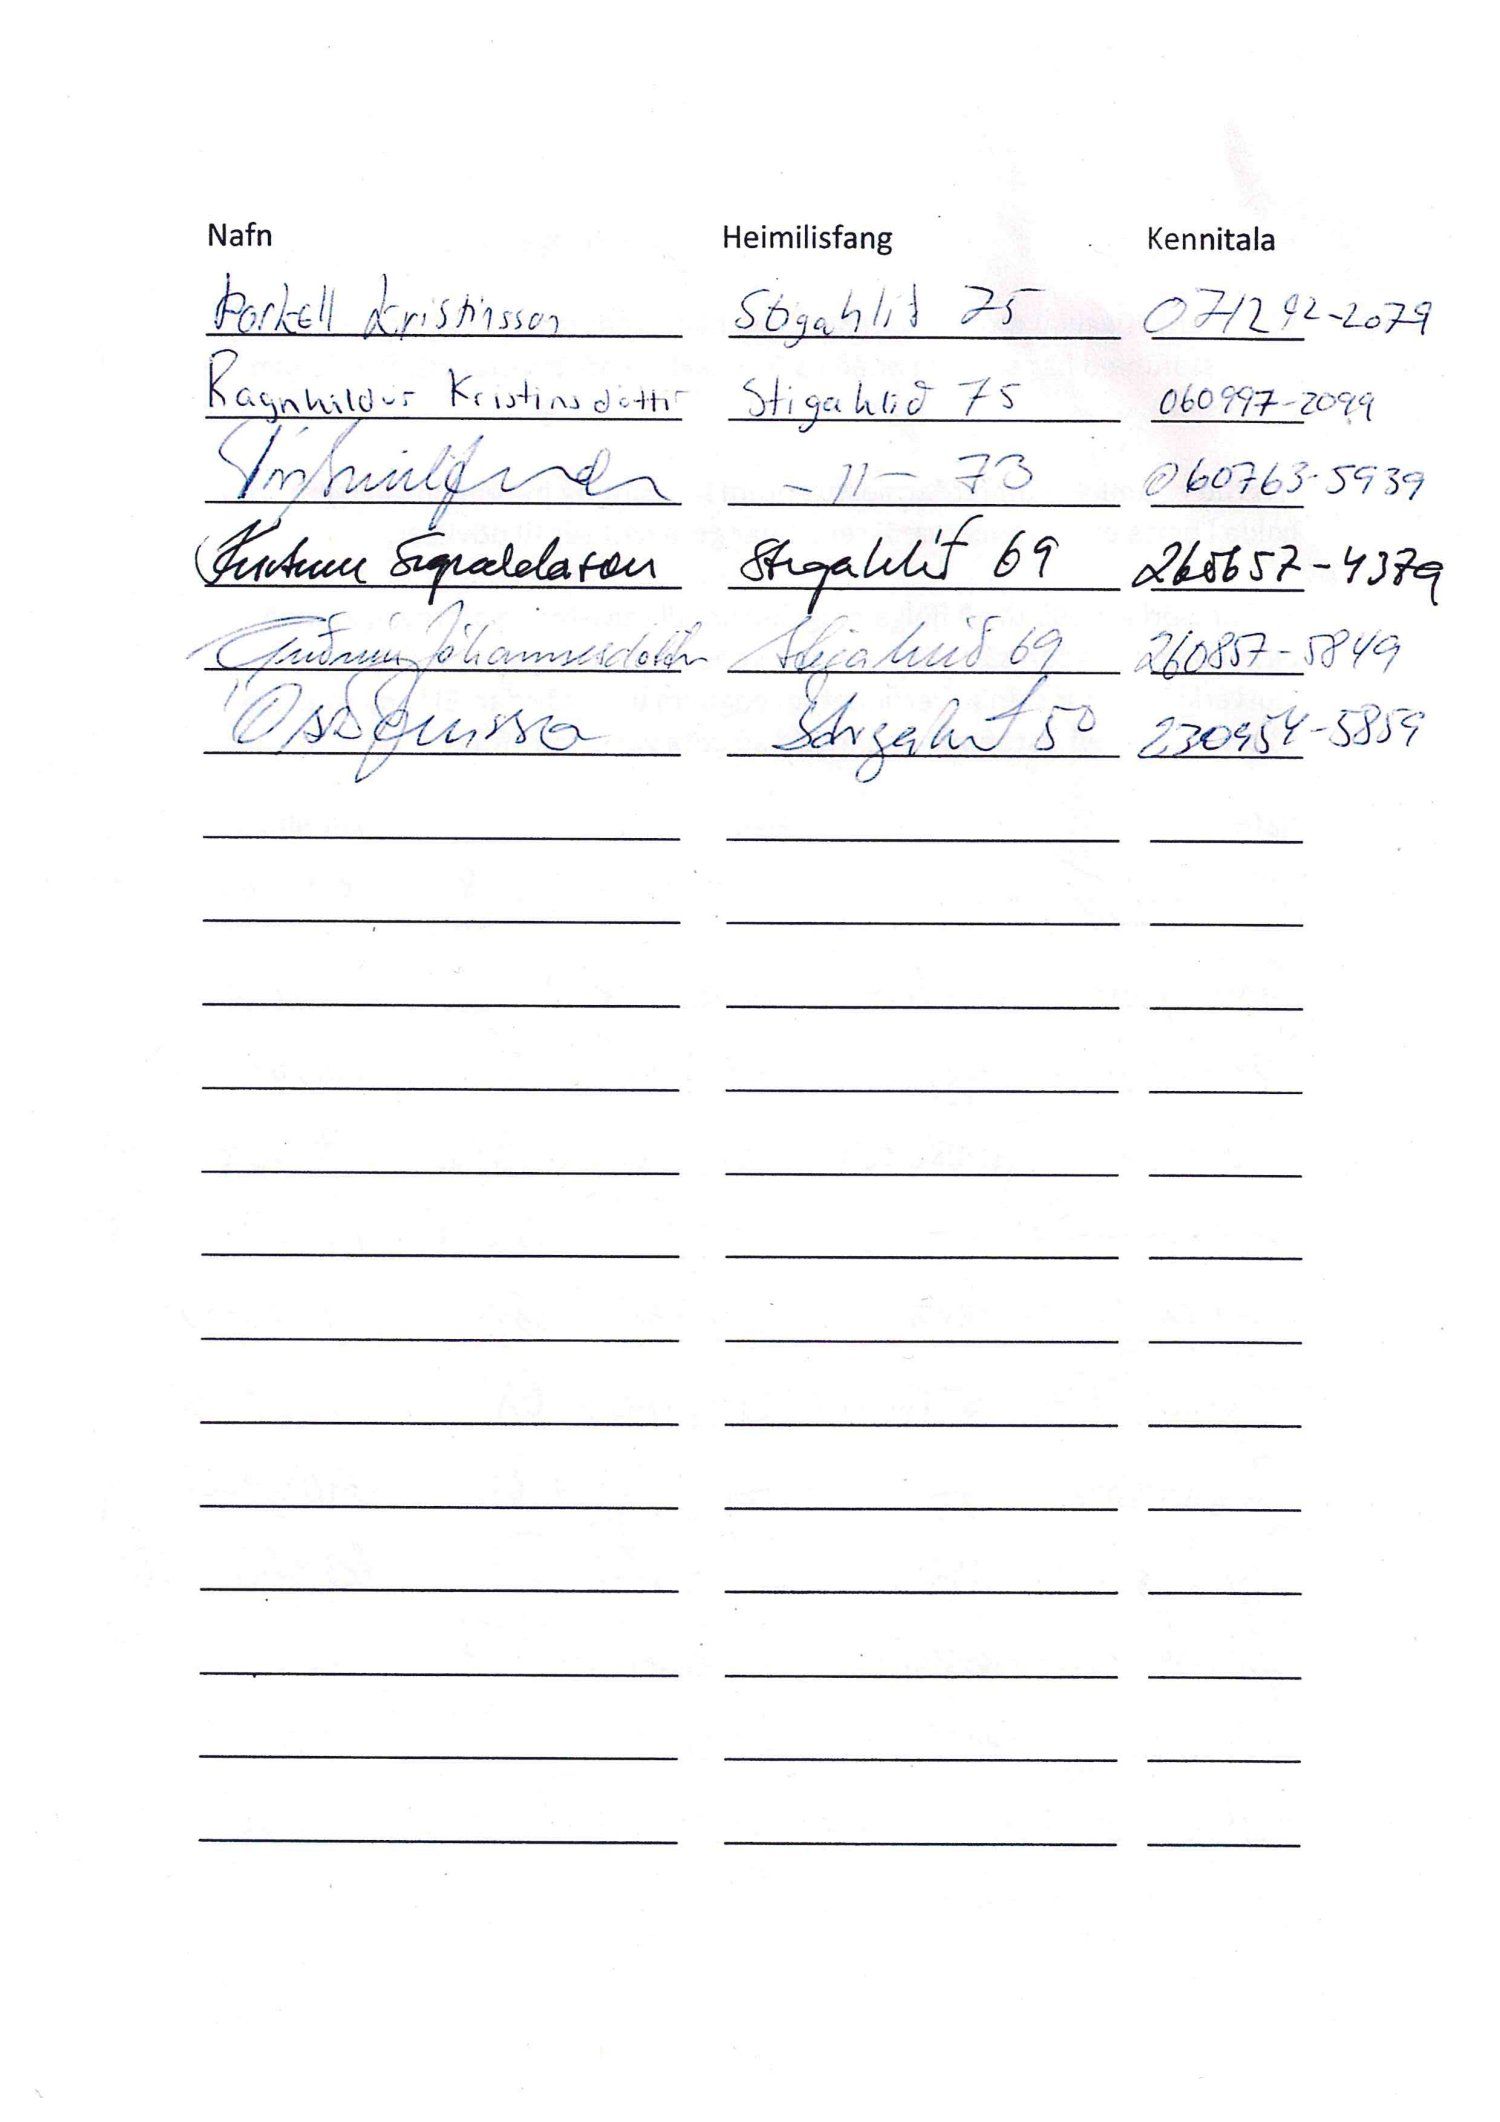 Nafn Heimilisfang Kennitala
Þorkell Kristinsson Stigahlíð 75 071292-2079
Ragnhildur Kristinsdóttir Stigahlíð 75 060997-2099
-11- 73 060763-5939
Sigvaldason Stigahlíð 69 -4379
Guðrún Jóhannesdóttir Stigahlíð 69 260857-5849
Stigahlíð 50 230954-5859